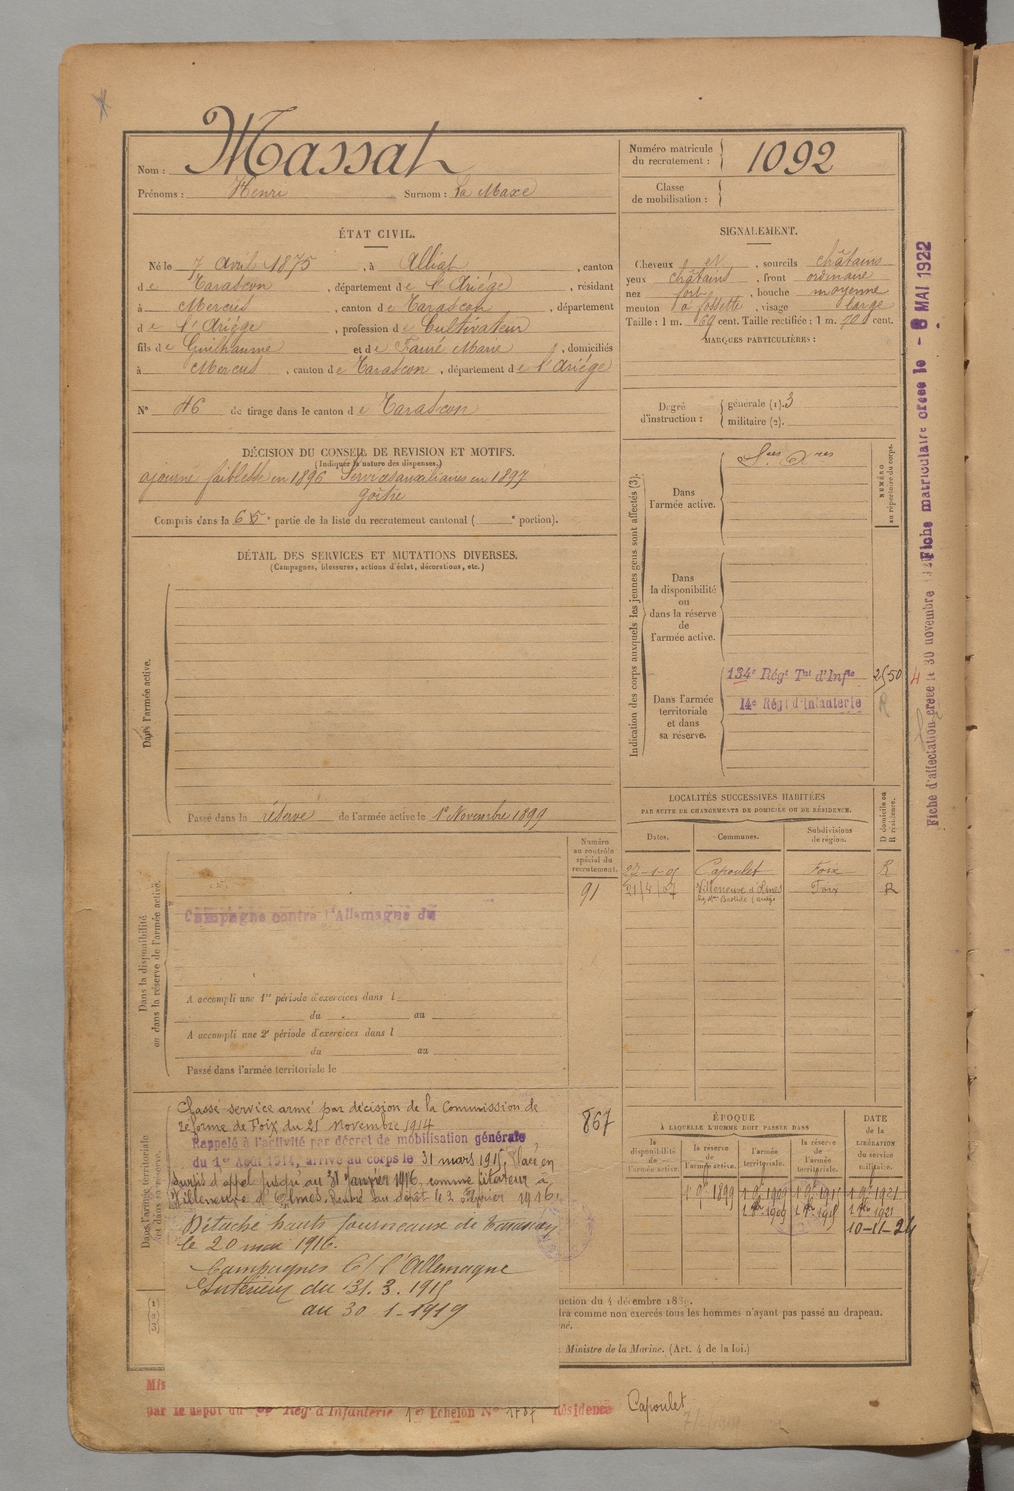 Nom : Massat
Prénoms : Henri Surnom : La Maxe
Numéro matricule du recrutement : 1092
Classe de mobilisation :
ÉTAT CIVIL.
Né le 7 Avril 1875, à Alliat, canton
de Tarascon, département de l'Ariège, résidant
à Mercus, canton de Tarascon, département
de l'Ariège, profession de Cultivateur
fils de Guilhaume et de Fauré Marie, domiciliés
à Mercus, canton de Tarascon, département de l'Ariège
N° 46 de tirage dans le canton de Tarascon
SIGNALEMENT.
Cheveux et, sourcils châtains
yeux châtains, front ordinaire
nez fort, bouche moyenne
menton à fossette, visage large
Taille : 1 m. 69 cent. Taille rectifiée : 1 m. 70 cent.
MARQUES PARTICULIÈRES :
Degré d'instruction : générale (1). 3
militaire (2).
DÉCISION DU CONSEIL DE REVISION ET MOTIFS.
(Indiquer la nature des dispenses.)
ajourné faiblesse en 1896 Services auxiliaires en 1897
goître
Compris dans la 6e partie de la liste du recrutement cantonal ( e portion).
DÉTAIL DES SERVICES ET MUTATIONS DIVERSES.
(Campagnes, blessures, actions d'éclat, décorations, etc.)
Dans l'armée active.
Passé dans la réserve de l'armée active le 1er Novembre 1899
Indication des corps auxquels les jeunes gens sont affectés (3).
NUMÉRO au répertoire du corps.
Dans l'armée active.
Sces Xres
Dans la disponibilité ou dans la réserve de l'armée active.
Dans l'armée territoriale et dans sa réserve.
134e Régt Tal d'Infie 2550
14e Régt d'Infanterie R
4
Fiche matriculaire créée le - 6 MAI 1922
Fiche d'affectation créée le 30 novembre
LOCALITÉS SUCCESSIVES HABITÉES
PAR SUITE DE CHANGEMENTS DE DOMICILE OU DE RÉSIDENCE.
Dates. Communes. Subdivisions de région. D domicile ou R résidence.
27-1-05 Capoulet Foix R
21/4/07 Villeneuve d'Olmes Foix R
Dans la disponibilité ou dans la réserve de l'armée active.
Numéro au contrôle spécial du recrutement.
91
Campagne contre l'Allemagne du
A accompli une 1re période d'exercices dans l
du au
A accompli une 2e période d'exercices dans l
du au
Passé dans l'armée territoriale le
Dans l'armée territoriale et dans sa réserve.
867
Classé service armé par décision de la Commission de
réforme de Foix du 21 Novembre 1914
Rappelé à l'activité par décret de mobilisation générale
du 1er Août 1914, arrivé au corps le 31 mars 1915, Placé en
sursis d'appel jusqu'au 31 Janvier 1916, comme filateur à
Villeneuve d'Olmes. Rentré au dépôt le 3 Février 1916.
Détaché hauts fourneaux de Tarascon
le 20 mai 1916.
Campagnes C/ l'Allemagne
Intérieur du 31.3.1915
au 30-1-1919
ÉPOQUE
À LAQUELLE L'HOMME DOIT PASSER DANS
la disponibilité de l'armée active. la réserve de l'armée active. l'armée territoriale. la réserve de l'armée territoriale.
DATE de la LIBÉRATION du service militaire.
1 9bre 1899 1 9bre 1909 1 9bre 1915 1 9bre 1921
1 8bre 1909 1 8bre 1915 1 8bre 1921
10-11-24
uction du 4 décembre 1889.
dra comme non exercés tous les hommes n'ayant pas passé au drapeau.
Ministre de la Marine. (Art. 4 de la loi.)
1 2 3
Mis
par le dépôt du Rég d'Infanterie 1er Echelon N° Résidence Capoulet